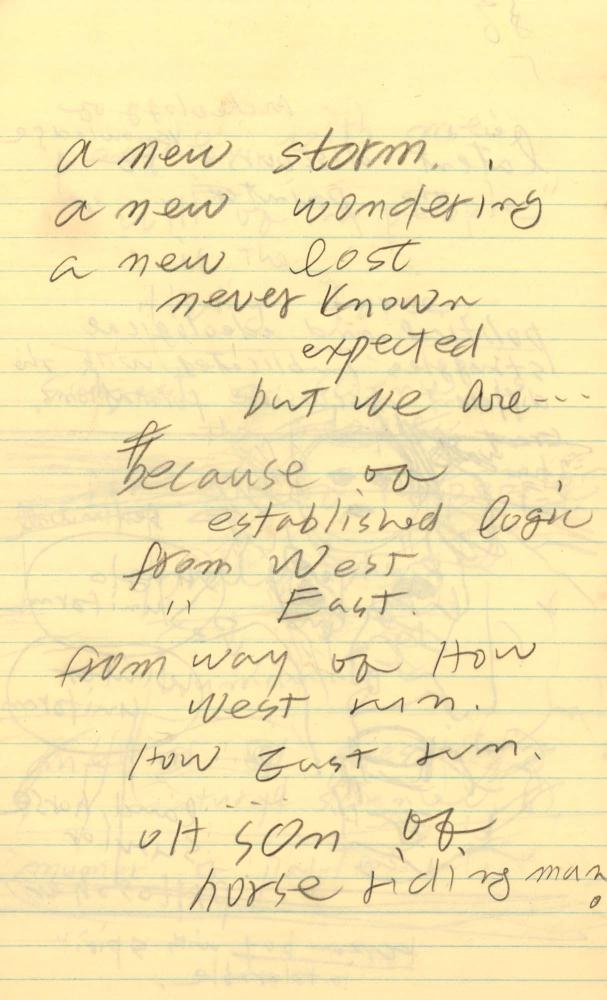 a new storm.
a new wondering
a new lost
never known
expected
but we are---
because of
established logic
from West
" East.
from way of How
West run.
How East run.
son of
horse riding man.